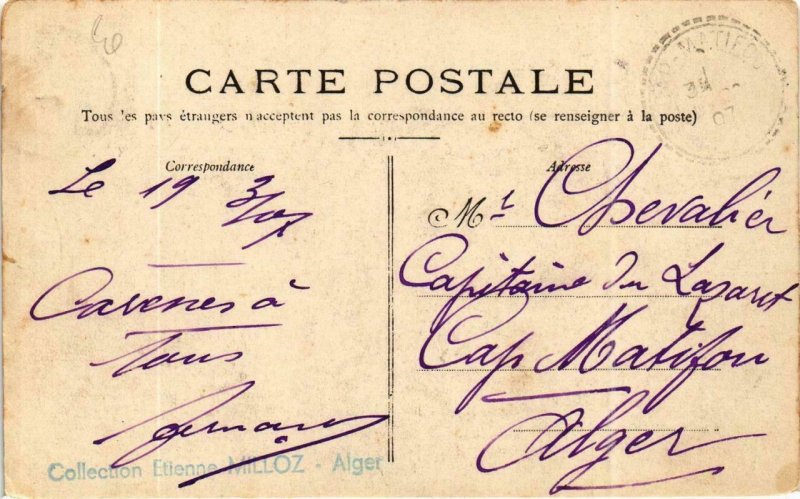 CARTE POSTALE
Tous les pays étrangers n'acceptent pas la correspondance au recto (se renseigner à la poste)
Correspondance
Adresse
Le 19 3/07
Caresses à
Tous
Mr Chevalier
Capitaine du Lazaret
Cap Matifou
Alger
Collection Etienne MILLOZ - Alger
MATIFOU
07